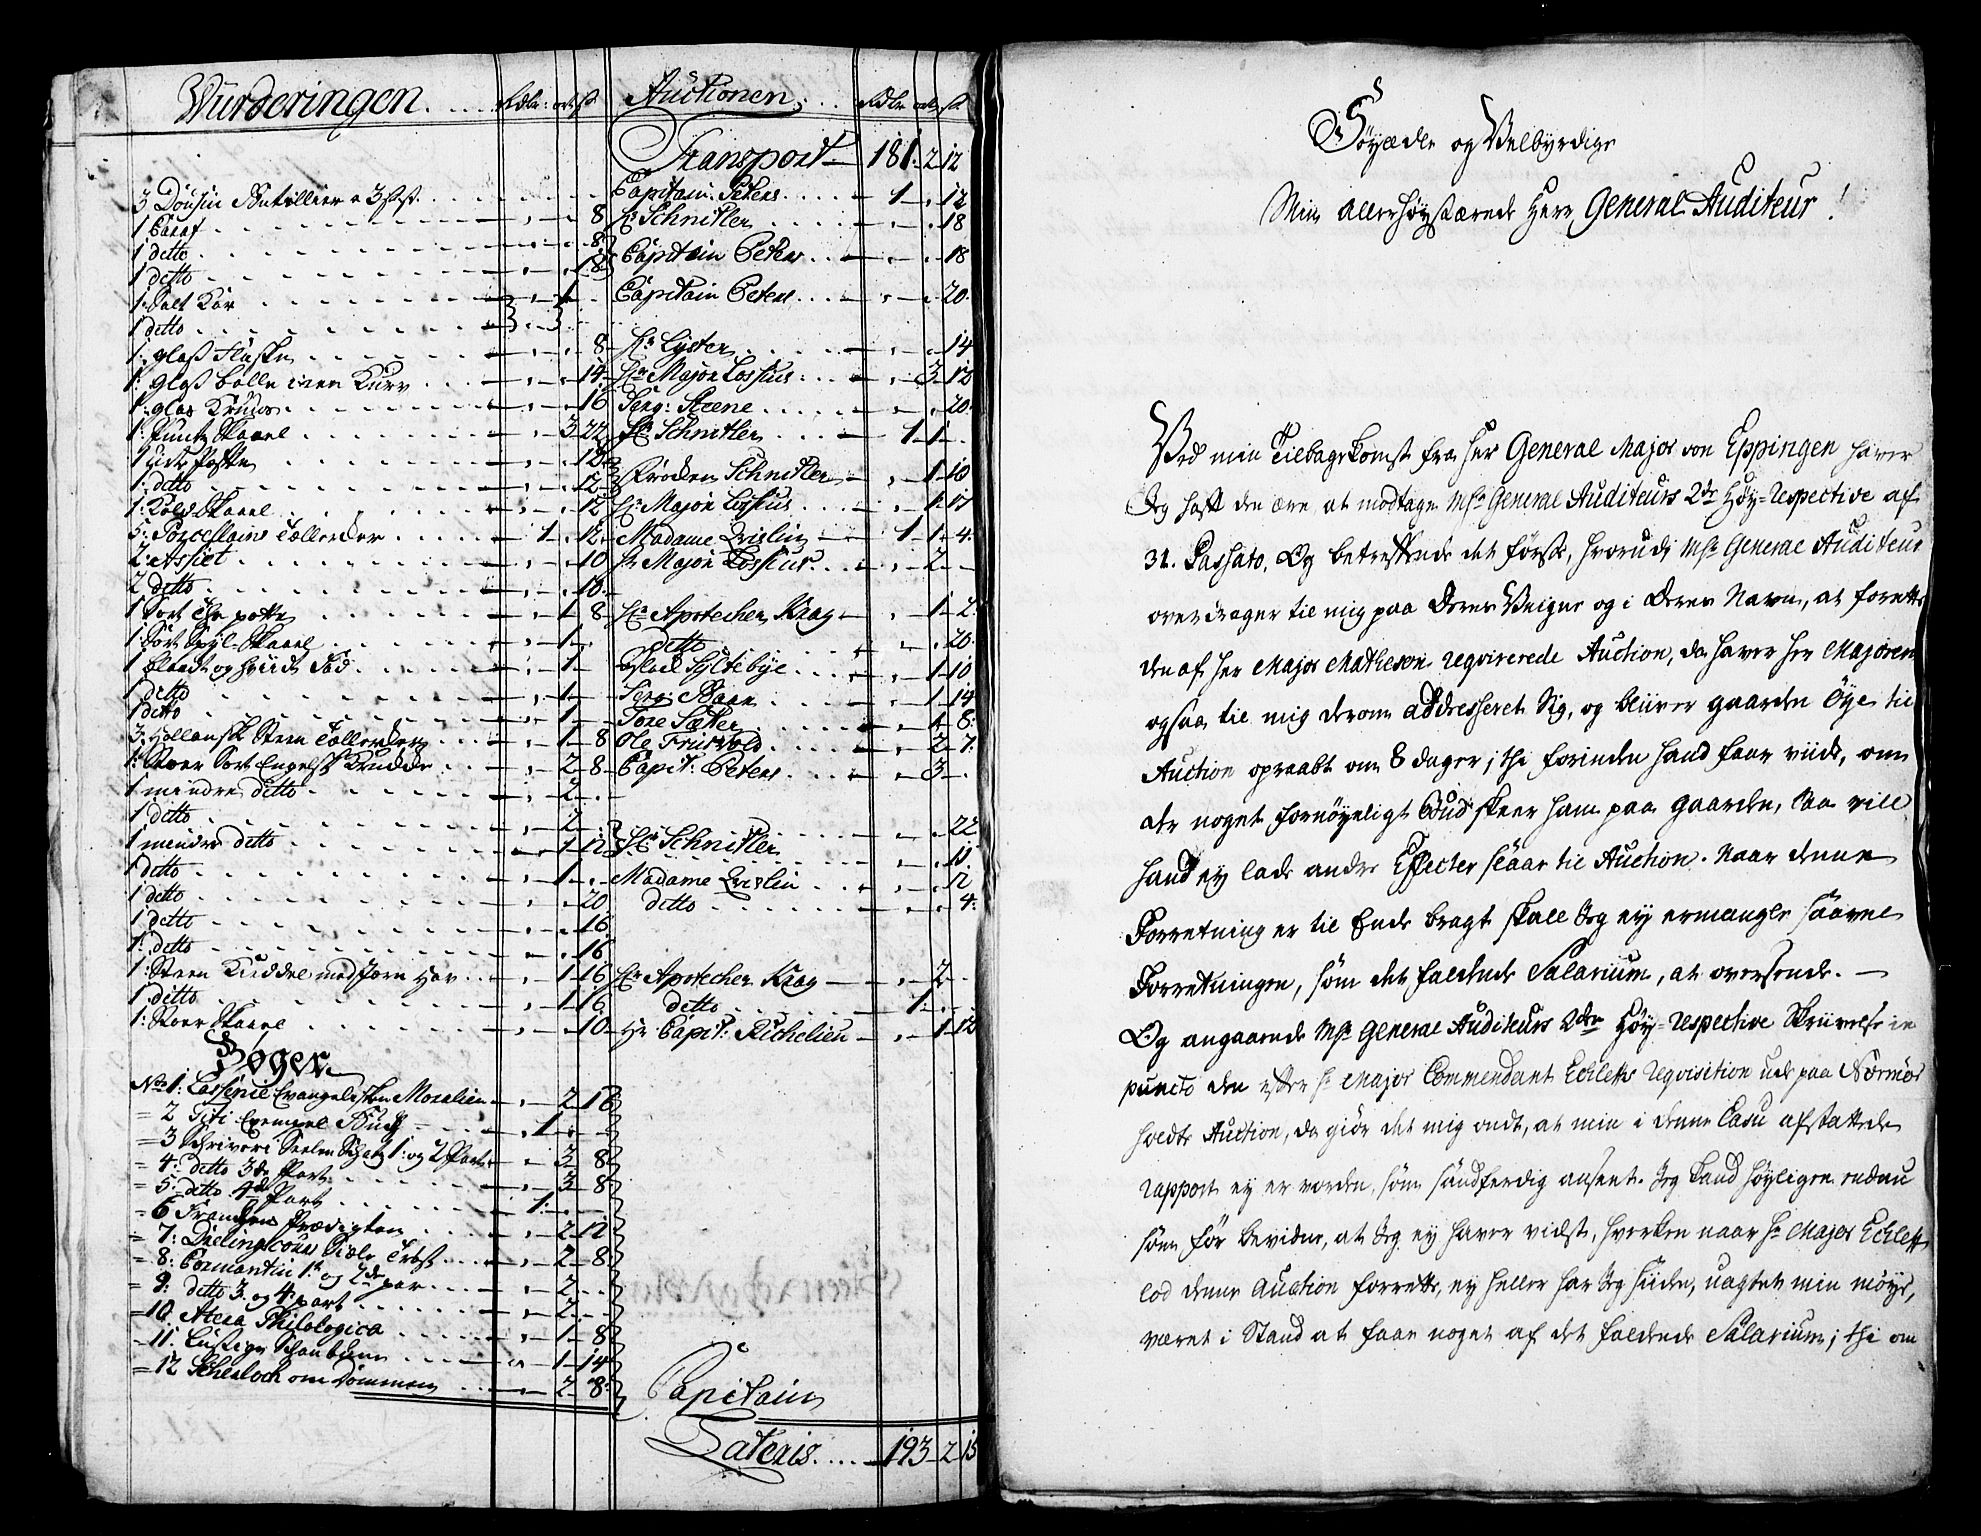 Vurderingen. . . . Rdlr: ort ß Auctionen. . . Rdlr ort ß
Transport 181. 2 12
3 Dousin Butellier a 3 ß st. Capitain Peters 1 " 12
1 Caraf " " 8 Hr Schnitler " " 18
1 detto " " 8
1 detto " " 18 Capitain Peters " " 18
1: Salt Kar " 1 Capitain Peters " " 20
1 detto
1: glaß Flaske " " 8 Hr Lyster " " 14
1: glaß bolle i een Kurv " " 14 Hr Major Lossius " 3 12
1: glas Kruus " " 16 Serg: Steene " " 20
1: Puns Skaael " 3 22 Hr Schnitler 1 1
1 " " 12
1: detto " " 12 Frøden Schnitler " 1 10
1 Kold Skaael " " 12 Hr Major Lossius " 1 17
5: Porcellains Tallerder " 1 12 Madame Qvislin 1 1 4
2: Assiet " " 10 Hr Major Lossius " 2
2 detto " " 10
1 Sort The potte " 1 8 Hr Apotecher Krag " 1 2
1: Sort Spyl-Skaael " 1 detto " " 20
1 blaat og hviidt Fad " 1 Syltebye " 1 10
1 detto " 1 Serg: " 1 14
1 detto " 1 Tore Sæter " 1 8
3: Hollansk Steen Tallerder " 1 8 Ole " 2 7
1: Stoer Sort Engelst Krukke " 2 8 Capit: Peters " 3
1 mindre ditto " 2
1 ditto " 2 " " 22
1 mindre detto " 1 12 Hr Schnitler " " 11
1 detto " 1 Madame Qvislin " " 12
1 detto " " 20 detto " " 4
1 detto " " 16
1: detto " " 16
1: Steen Kuddel med Jern " 1 16 Hr Apotecher Krag " 2
1 ditto " 1 16 detto 1
1: Stoer Skaael " " 10 Hr Capit: Richelieu " 1 12
Bøger
No 1. Lassenii Evangelisken Moralien " 2 16
= 2 Titi Exempel Buch " 1
= 3 Schriveri Seelen Schatz 1: og 2 Part " 3 8
= 4: detto 3de Part " 3 8
= 5: detto 4de Part " 1
= 6 Prædigten " 2 12
= 7: Siæle Trøst " 2 8
= 8: Cormantin 1te og 2de part " 2
= 9: detto 3. og 4. part " 2
= 10. Philologica " 1 8
= 11. Lustige Schaubune " 1 14
= 12 Scherloch om Dommen " 2 8 Capitain
Lateris 193 2 15
Høyædle og Velbyrdige
Min allerhøystærede Herr General Auditeur!
Ved min Tilbagekomst fra Her General Major von Eppingen haver
Jeg hafft den ære at modtage Hr General Auditeurs 2de Høy=respective af
31. Passato. Og betreffende det første, hvorudi Hr General Auditeur
overdrager til mig paa Deres Veigne og i Deres Navn, at forette
den af Her Major Matheson reqvirerede Auction, da haver Her Majoren
ogsaa til mig derom addresseret Sig, og bliver gaarden Øye til
Auction opraabt om 8 dager; thi forinden hand faar viide, om
der noget fornøyeligt Bud skeer ham paa gaarden, Saa vill
hand ey lade andre Effecter slaar til Auction. Naar denne
Forretning er til Ende bragt skall Jeg ey ermangle saavel
Forretningen, som det faldende Salarium, at oversende. —
Og angaaende Hr General Auditeurs 2den Høy=respective Skrivelse in
puncto den efter Hr Major Commendant Ecklefs reqvisition ude paa Normør
holdte Auction, da giør det mig ondt, at min i denne Casu afstattede
rapport ey er vorden, som sandferdig anseet. Jeg kand høyligen endnu
som før bevidne, at Jeg ey haver vidst, hverken naar Hr Major Ecklef
lod denne Auction forrette, ey heller har Jeg siiden, uagtet min møye,
været i Stand at faae noget af det faldende Salarium; thi om